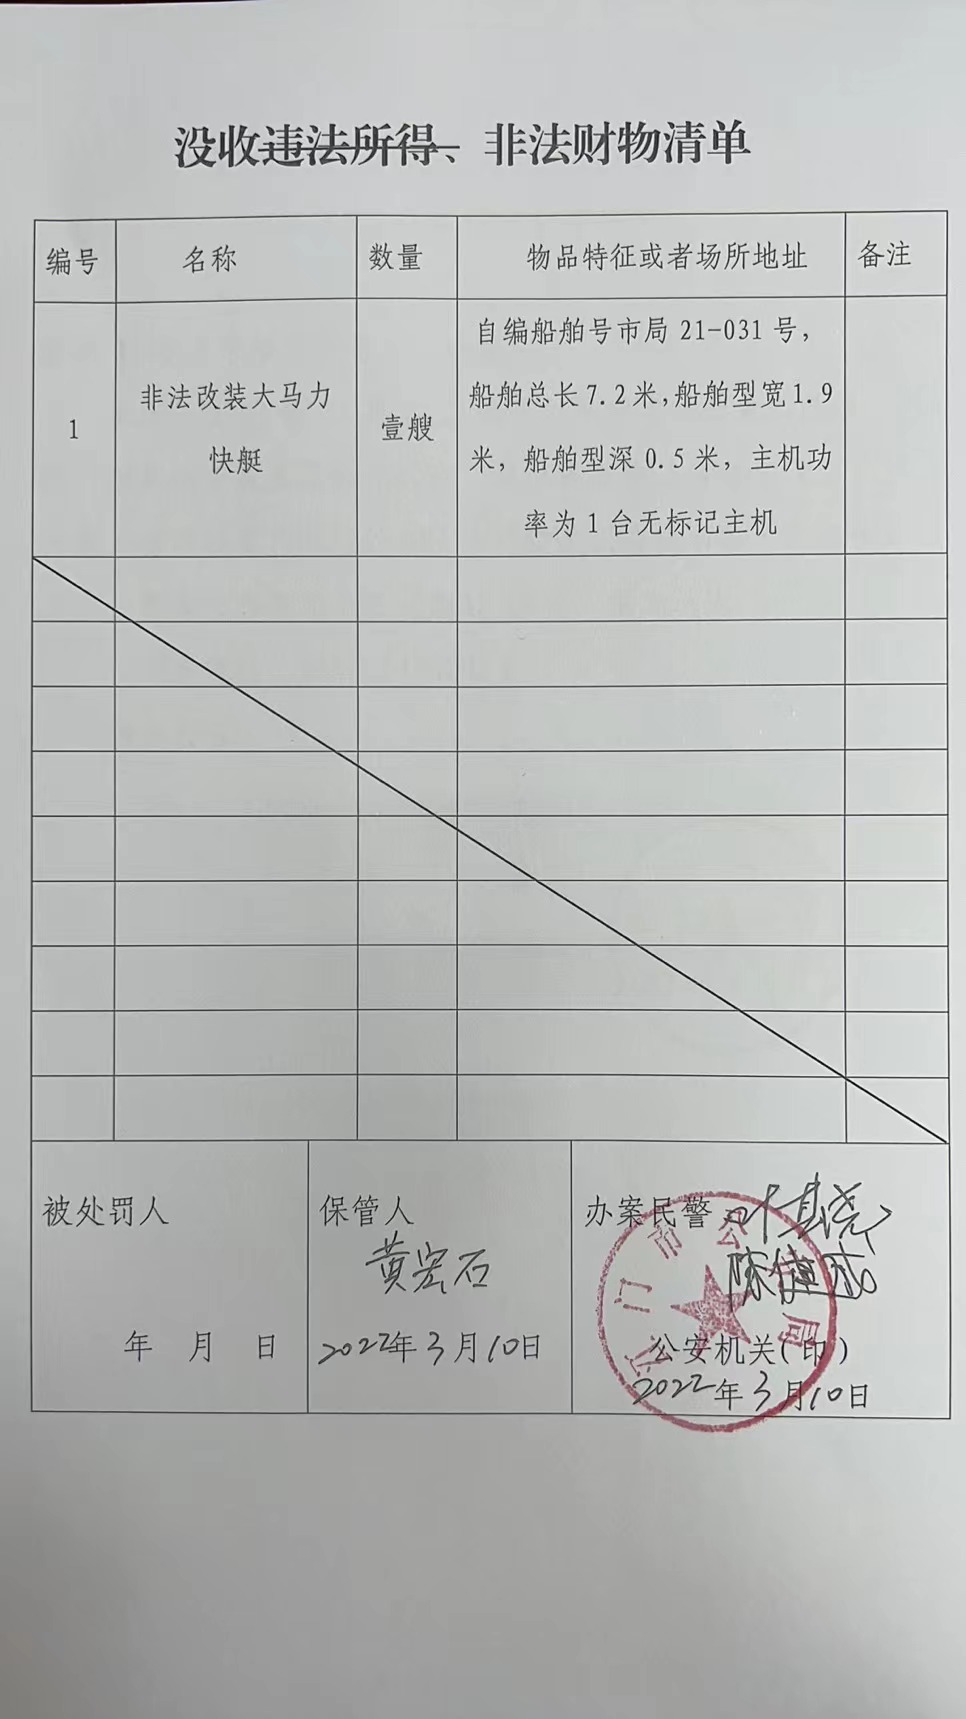 没收违法所得、非法财物清单
编号 名称 数量 物品特征或者场所地址 备注
1
非法改装大马力
快艇
壹艘
自编船舶号市局21-031号，
船舶总长7.2米，船舶型宽1.9
米，船舶型深0.5米，主机功
率为1台无标记主机
被处罚人
年 月 日
保管人
黄宏石
2022年3月10日
办案民警
陈健成
公安机关（印）
2022年3月10日
江门市公安局